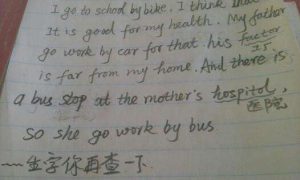 I go to school by bike. I think
It is good for my health. My father
go work by car for that his factor
is far from my home. And there is
a bus stop at the mother's hospitol,
医院
so she go work by bus
~~~生字你再查一下